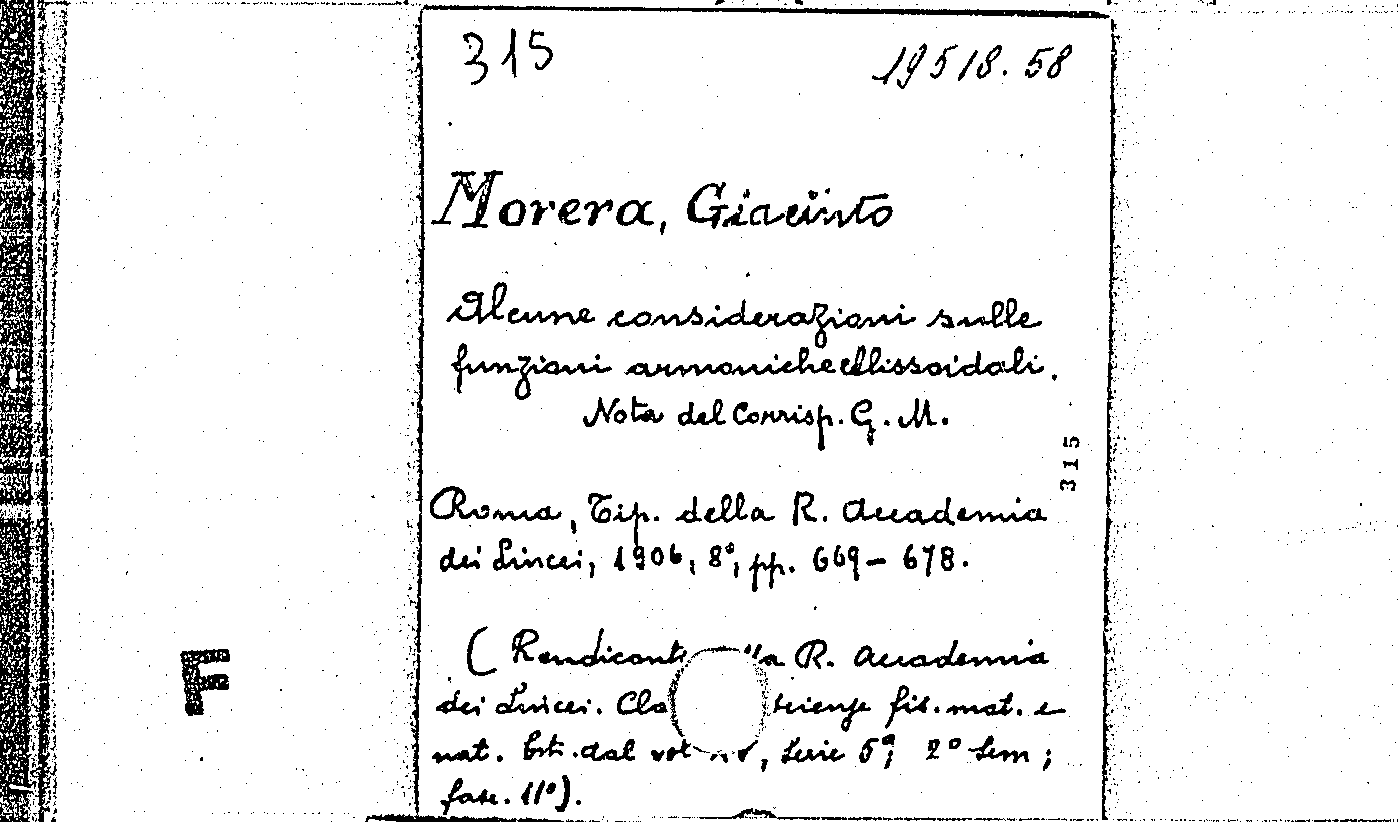 315 19518.58
Morera, Giacinto
Alcune considerazioni sulle
funzioni armoniche ellissoidali.
Nota del Corrisp. G. M.
315
Roma, Tip. della R. Accademia
dei Lincei, 1906, 8°, pp. 669-678.
( Rendiconti R. Accademia
dei Lincei. scienze fis. mat. e
nat. Estr. dal vol , Serie 5ª, 2° Sem;
fasc. 11°).
F